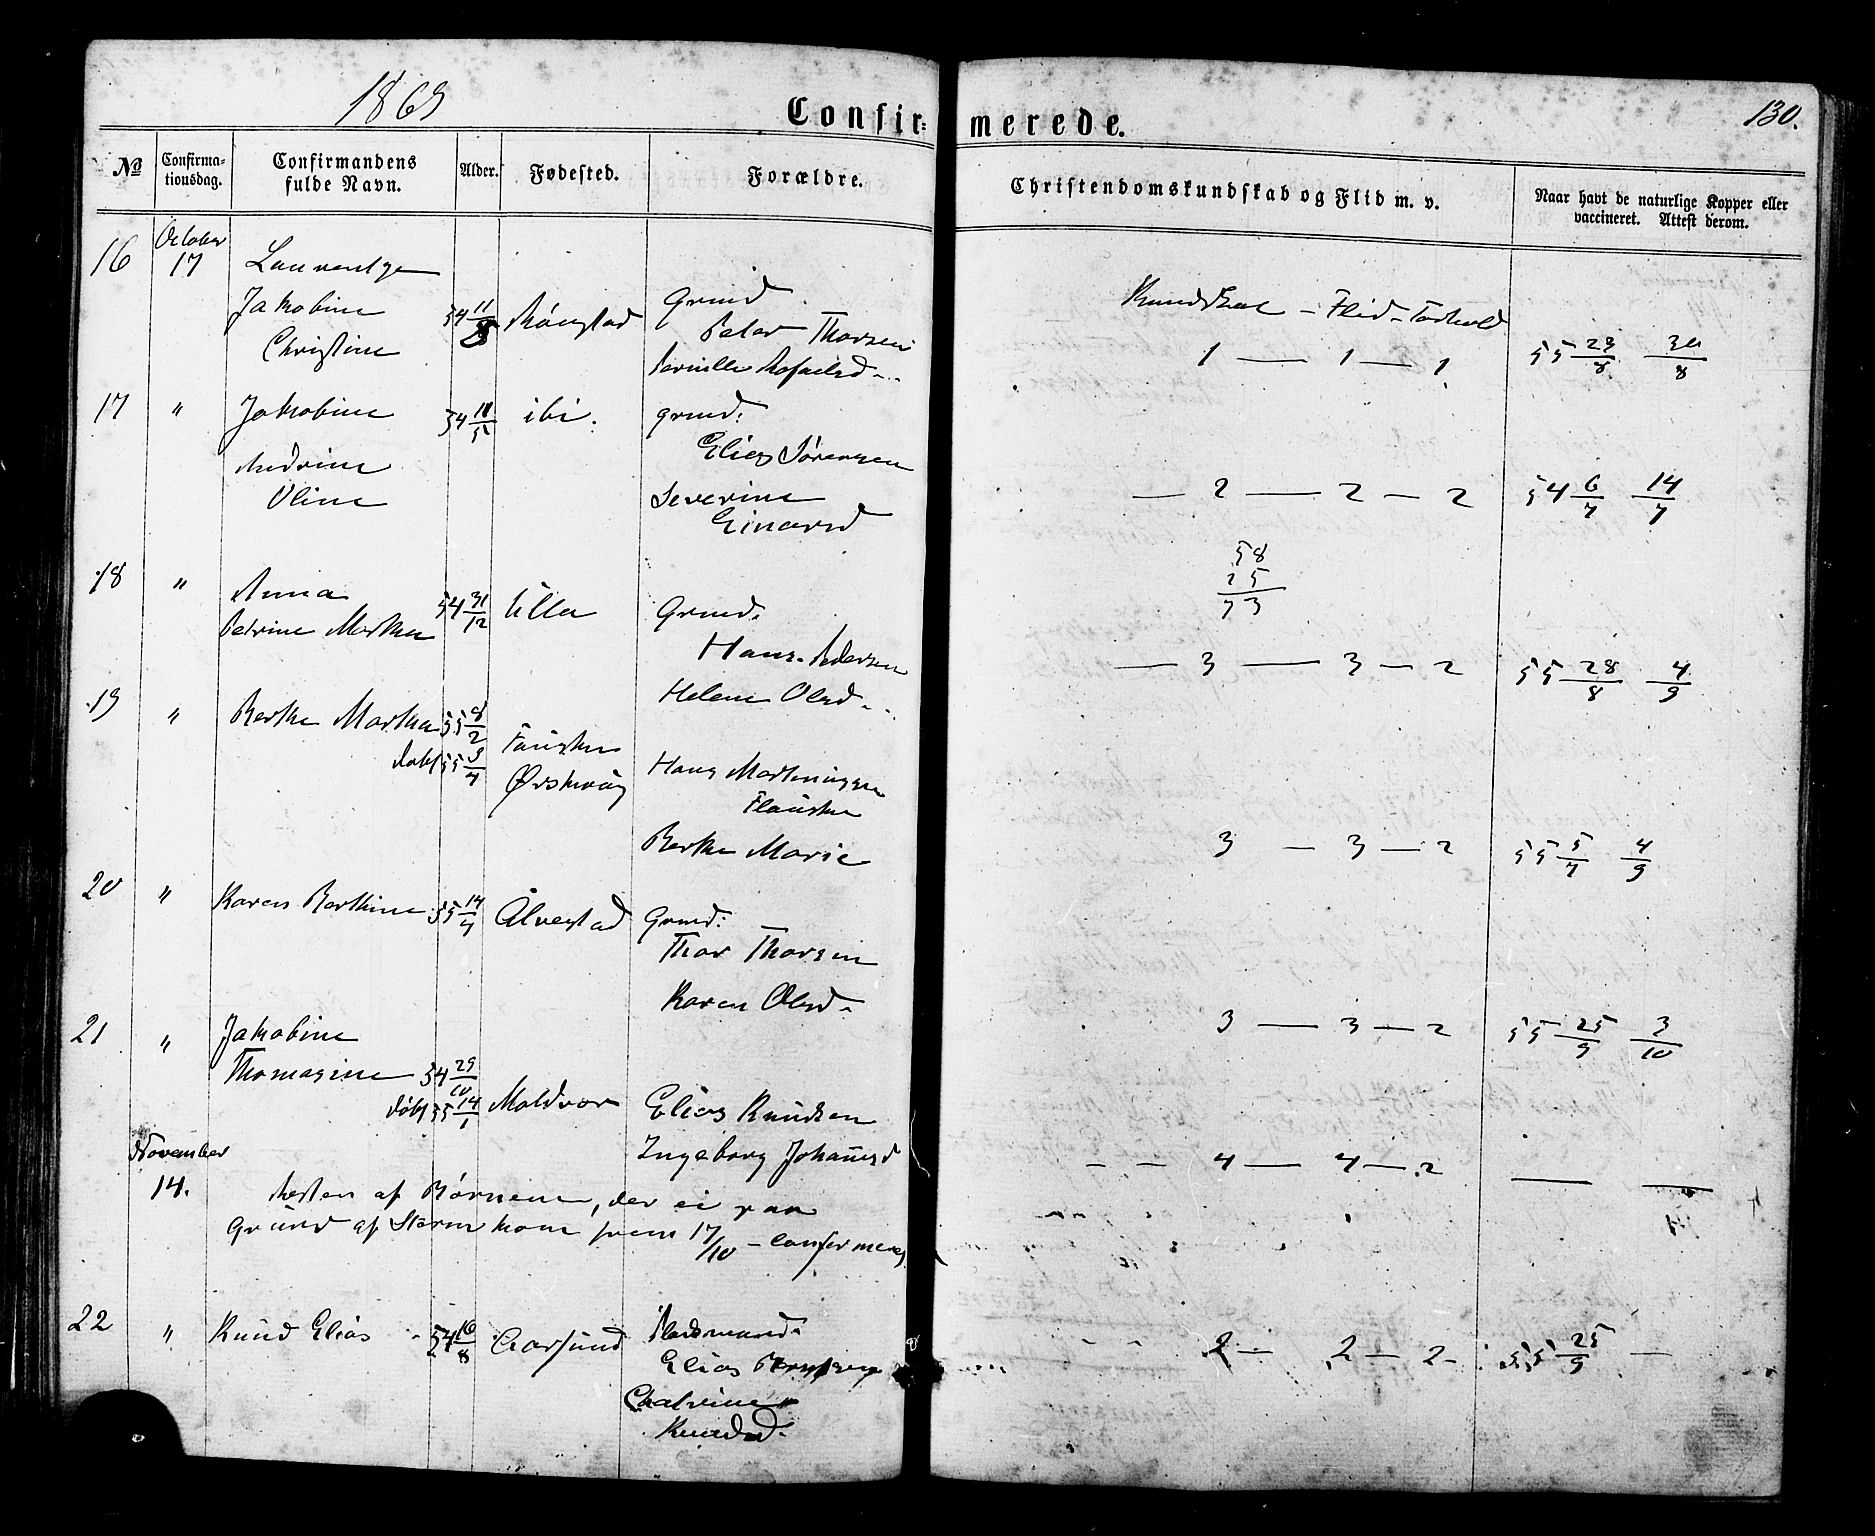 1869
Confir=merede.
130.
No
Confirma-
tionsdag.
Confirmandens
fulde Navn.
Alder.
Fødested.
Forældre.
Christendomskundskab og Flid m. v.
Naar havt de naturlige Kopper eller
vaccineret. Attest derom.
16 October 17 Laurentze
Jakobine 54 11/8
Christine
Grmd
Peder Thorsen
Pernille
Kundskab – Flid – Forhold
1 — 1 — 1 55 29/8 30/8
17 " Jakobine 54 18/5 ibi. grmd:
Andrine
Oline
Elias Sørensen
Severine
Einarsd
— 2 — 2 — 2 54 6/7 14/7
58
15
73
18 " Anna
Petrine Marthea 54 31/12 Ulla Grmd.
Hans Pedersen
Helene Olsd..
— 3 — 3 — 2 55 28/8 4/9
19 " Berthe Marthea 55 8/2
døbt 55 9/4
Fausken
Ørskoug
Hans Martinussen
Flausken
Berthe Marie
3 — 3 — 2 55 5/7 4/9
20 " Karen Berthine 55 14/4 Alvestad Grmd:
Thor Thorsen
Karen Olsd.
3 — 3 — 2 55 25/9 3/10
21 " Jakobine
Thomasine 54 29/10
døbt 55 14/1 Moldvær Elias Knudsen
Ingeborg Johannesd
– – 4 — 4 — 2
November
14. Resten af Børnene, der ei paa
Grund af Storm kom frem 17/10 – confirmeres
22 " Knud Elias 54 16/8 Aarsund Pladsmand.
Elias
Cathrine
Knudsd.
2 – 2 – 2 – 55 25/9 —